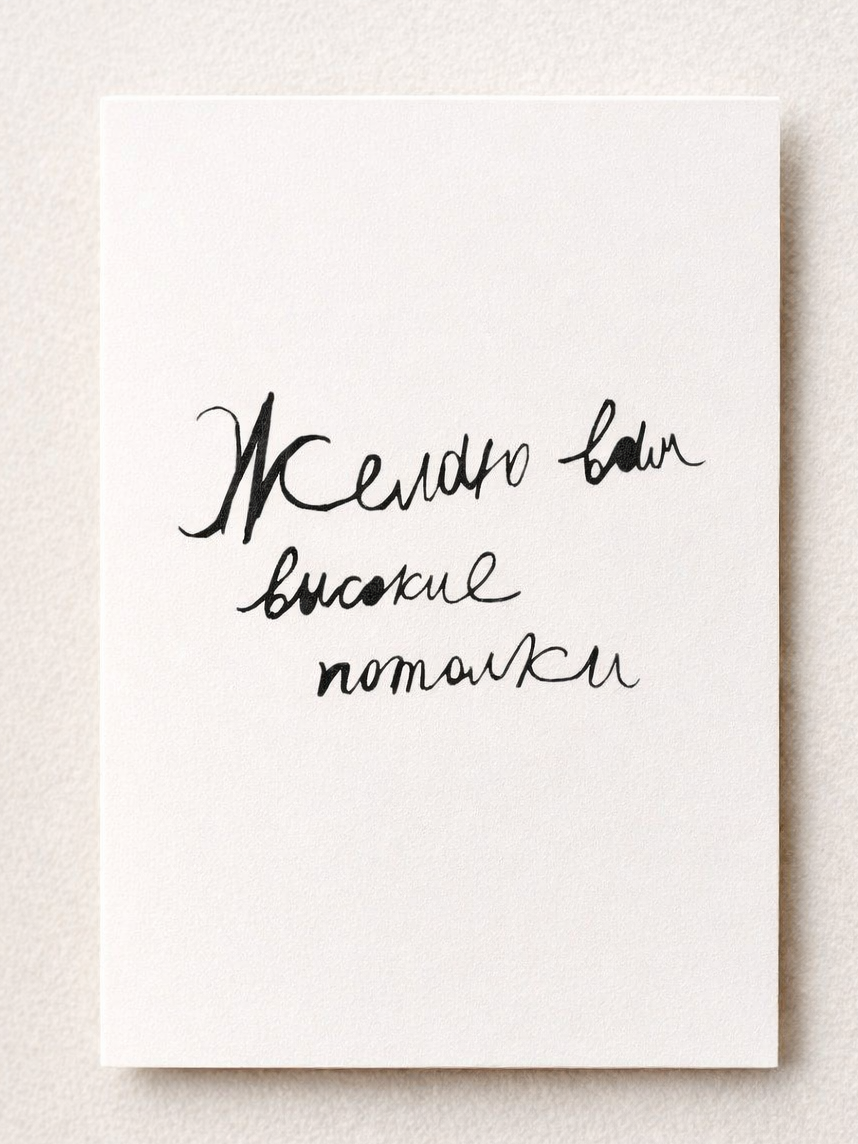 Желаю вам
высокие
потолки